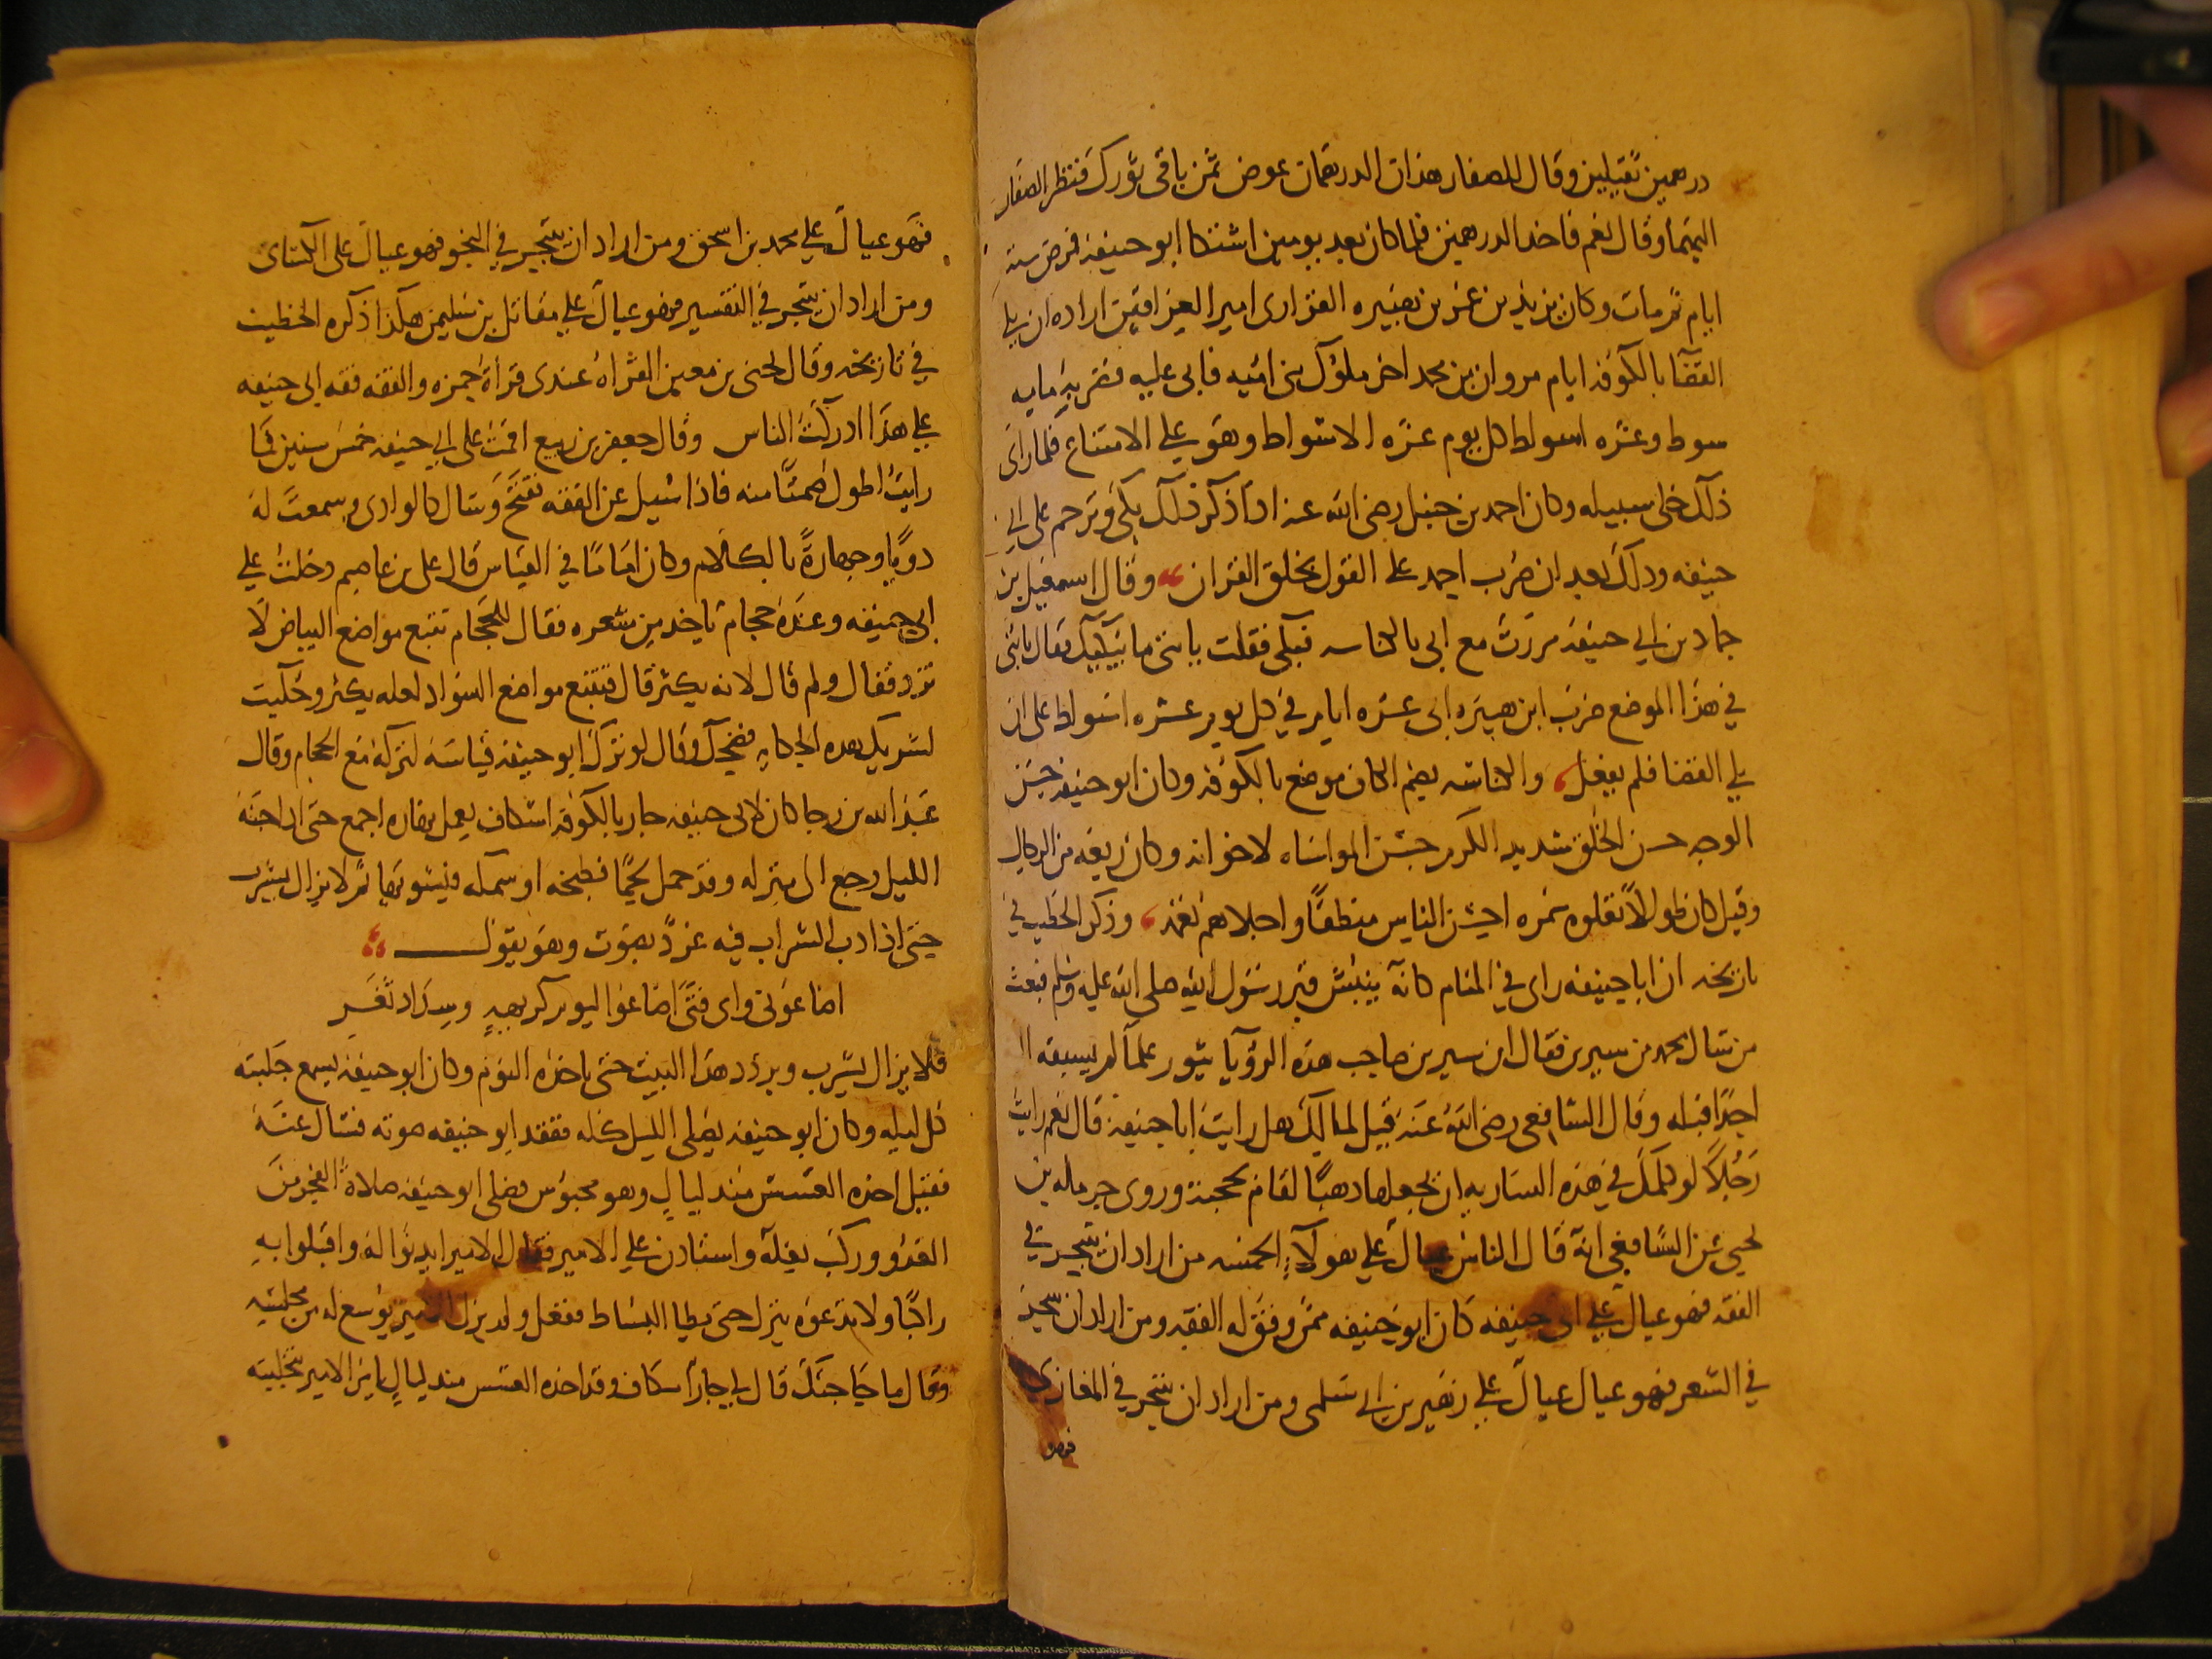 درهمين ثقيلين وقال للصفار هذان الدرهمان عوض ثمن باقي تورك فنظر الصفار
اليهما وقال نعم فاخذ الدرهمين فلما كان بعد يومين اشتكا ابو حنيفه فمرض سته
ايام ثم مات وكان يزيد بن عمر بن هبيره الفزارى امير العراقين اراده ان يلي
القضا بالكوفه ايام مروان بن محمد اخر ملوك بنى اميه فابى عليه فضربه مايه
سوط وعشره اسواط كل يوم عشره الاسواط وهو علي الامتناع فلما راى
ذلك خلى سبيله وكان احمد بن حنبل رضى الله عنه اذا ذكر ذلك بكى وترحم على ابي
حنيفه وذلك بعد ان ضرب احمد على القول بخلق القران وقال اسمعيل بن
حماد بن ابي حنيفه مررت مع ابي بالكناسه فبكى فقلت يا بتى ما يبكيك فقال يا بنى
في هذا الموضع ضرب ابن هبيره ابى عشره ايام في كل يوم عشره اسواط على ان
يلي القضا فلم يفعل والكناسه بضم الكاف موضع بالكوفه وكان ابو حنيفه حسن
الوجه حسن الخلق شديد الكرم حسن المواساه لاخوانه وكان ربعه من الرجال
وقيل كان طوالا تعلوه سمره احسن الناس منطقا واحلاهم نغمه وذكر الخطيب في
تاريخه ان ابا حنيفه راى في المنام كانه ينبش قبر رسول الله صلى الله عليه وسلم فبعث
من سال محمد بن سيرين فقال ابن سيرين صاحب هذه الرؤيا يثور علما لم يسبقه ال
احدا قبله وقال الشافعى رضى الله عنه قيل لمالك هل رايت ابا حنيفه قال نعم رايت
رجلا لو كلمك في هذه الساريه ان يجعلها ذهبا لقام بحجته وروى حرمله بن
يحيى عن الشافعي انه قال الناس عيال علي هولاء الخمسه من اراد ان يتبحر في
الفقه فهو عيال علي ابى حنيفه كان ابو حنيفه ممن وفق له الفقه ومن اراد ان يتبحر
في الشعر فهو عيال عيال علي زهير بن ابي سلمى ومن اراد ان يتبحر في المغازى
فهو
فهو عيال علي محمد بن اسحق ومن اراد ان يتبحر في النحو فهو عيال على الكساى
ومن اراد ان يتبحر في التفسير فهو عيال علي مقاتل بن سليمن هكذا ذكره الخطيب
في تاريخه وقال يحيى بن معين القراه عندى قرأة حمزه والفقه فقه ابي حنيفه
علي هذا ادركت الناس وقال جعفر بن ربيع اقمت على ابي حنيفه خمس سنين فما
رايت اطول صمتا منه فاذا سيل عن الفقه تفتح وسال كالوادى وسمعت له
دويا وجهارة بالكلام وكان اماما في القياس قال على بن عاصم دخلت علي
ابى حنيفه وعنده حجام ياخذ من شعره فقال للحجام تتبع مواضع البياض لا
تزد فقال ولم قال لانه يكثر قال فتتبع مواضع السواد لعله يكثر وحكيت
لشريك هده الحكايه فضحك وقال لو ترك ابو حنيفه قياسه لتركه مع الحجام وقال
عبد الله بن رجا كان لابى حنيفه جار بالكوفه اسكاف يعمل نهاره اجمع حتى اذا جنه
الليل رجع ال منزله وقد حمل لحما فطبخه او سمكه فيشويها ثم لا يزال يشرب
حتى اذا دب الشراب فيه غرد بصوت وهو يقول
اضاعونى واى فتى اضاعوا ليوم كريهه وسداد ثغر
فلا يزال يشرب ويردد هذا البيت حتى ياخذه النوم وكان ابو حنيفه يسمع جلبته
كل ليله وكان ابو حنيفه يصلى الليل كله ففقد ابو حنيفه صوته فسال عنه
فقيل اخذه العسس منذ ليال وهو محبوس فصلى ابو حنيفه صلاة الفجر من
الغد وركب بغلته واستاذن علي الامير فقال الامير ايذنوا له واقبلوا به
راكبا ولا تدعوه ينزل حتى يطيا البساط ففعل ولم يزل الامير يوسع له من مجلسه
وقال ما حاجتك قال لي جار اسكاف وقد اخذه العسس منذ ليال يامر الامير بتخليته